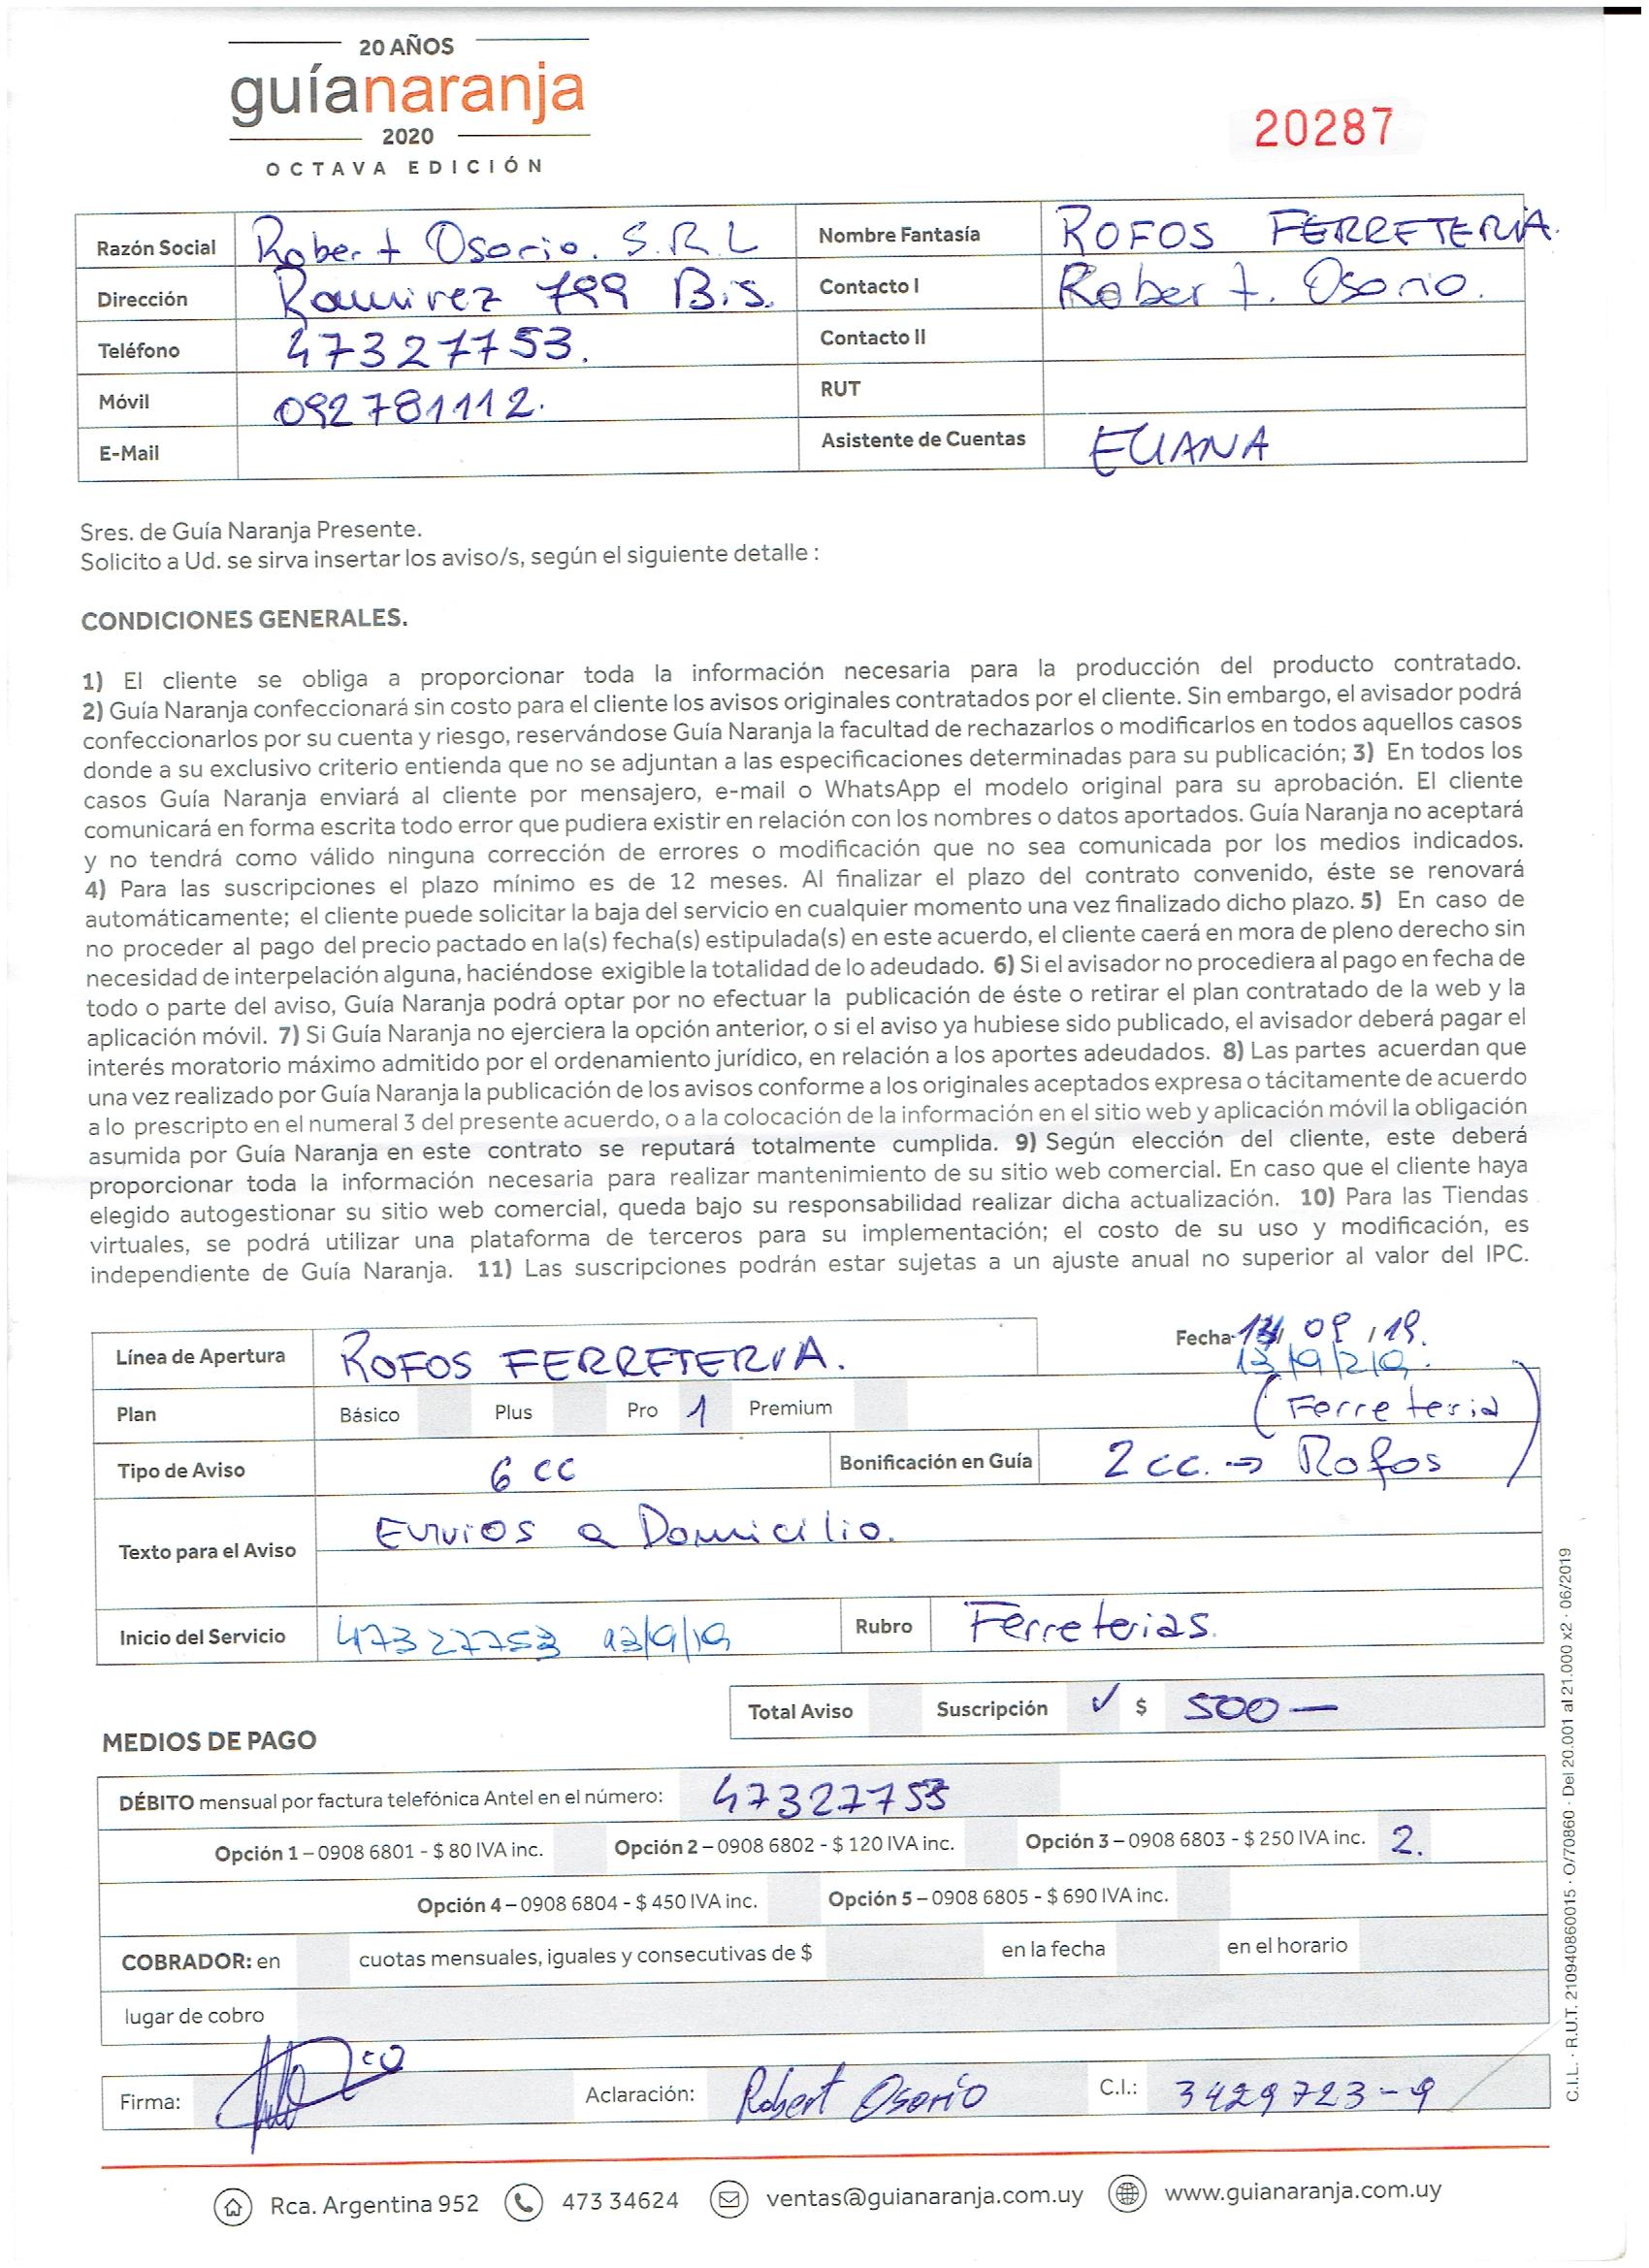 20 AÑOS
guíanaranja
2020
OCTAVA EDICIÓN
20287
Razón Social Robert Osorio. S.R.L Nombre Fantasía ROFOS FERRETERIA.
Dirección Ramirez 799 Bis. Contacto I Robert. Osorio.
Teléfono 47327753. Contacto II
Móvil 092781112. RUT
E-Mail Asistente de Cuentas ELIANA
Sres. de Guía Naranja Presente.
Solicito a Ud. se sirva insertar los aviso/s, según el siguiente detalle :
CONDICIONES GENERALES.
1) El cliente se obliga a proporcionar toda la información necesaria para la producción del producto contratado.
2) Guía Naranja confeccionará sin costo para el cliente los avisos originales contratados por el cliente. Sin embargo, el avisador podrá
confeccionarlos por su cuenta y riesgo, reservándose Guía Naranja la facultad de rechazarlos o modificarlos en todos aquellos casos
donde a su exclusivo criterio entienda que no se adjuntan a las especificaciones determinadas para su publicación; 3) En todos los
casos Guía Naranja enviará al cliente por mensajero, e-mail o WhatsApp el modelo original para su aprobación. El cliente
comunicará en forma escrita todo error que pudiera existir en relación con los nombres o datos aportados. Guía Naranja no aceptará
y no tendrá como válido ninguna corrección de errores o modificación que no sea comunicada por los medios indicados.
4) Para las suscripciones el plazo mínimo es de 12 meses. Al finalizar el plazo del contrato convenido, éste se renovará
automáticamente; el cliente puede solicitar la baja del servicio en cualquier momento una vez finalizado dicho plazo. 5) En caso de
no proceder al pago del precio pactado en la(s) fecha(s) estipulada(s) en este acuerdo, el cliente caerá en mora de pleno derecho sin
necesidad de interpelación alguna, haciéndose exigible la totalidad de lo adeudado. 6) Si el avisador no procediera al pago en fecha de
todo o parte del aviso, Guía Naranja podrá optar por no efectuar la publicación de éste o retirar el plan contratado de la web y la
aplicación móvil. 7) Si Guía Naranja no ejerciera la opción anterior, o si el aviso ya hubiese sido publicado, el avisador deberá pagar el
interés moratorio máximo admitido por el ordenamiento jurídico, en relación a los aportes adeudados. 8) Las partes acuerdan que
una vez realizado por Guía Naranja la publicación de los avisos conforme a los originales aceptados expresa o tácitamente de acuerdo
a lo prescripto en el numeral 3 del presente acuerdo, o a la colocación de la información en el sitio web y aplicación móvil la obligación
asumida por Guía Naranja en este contrato se reputará totalmente cumplida. 9) Según elección del cliente, este deberá
proporcionar toda la información necesaria para realizar mantenimiento de su sitio web comercial. En caso que el cliente haya
elegido autogestionar su sitio web comercial, queda bajo su responsabilidad realizar dicha actualización. 10) Para las Tiendas
virtuales, se podrá utilizar una plataforma de terceros para su implementación; el costo de su uso y modificación, es
independiente de Guía Naranja. 11) Las suscripciones podrán estar sujetas a un ajuste anual no superior al valor del IPC.
Línea de Apertura ROFOS FERRETERIA. Fecha / 09 / 19.
Plan Básico Plus Pro 1 Premium (Ferreteria)
Tipo de Aviso 6 cc Bonificación en Guía 2 cc. → Rofos
Texto para el Aviso Envios a Domicilio.
Inicio del Servicio 47327753 13/9/19 Rubro Ferreterias.
Total Aviso Suscripción ✓ $ 500 —
MEDIOS DE PAGO
DÉBITO mensual por factura telefónica Antel en el número: 47327753
Opción 1 – 0908 6801 - $ 80 IVA inc. Opción 2 – 0908 6802 - $ 120 IVA inc. Opción 3 – 0908 6803 - $ 250 IVA inc. 2.
Opción 4 – 0908 6804 - $ 450 IVA inc. Opción 5 – 0908 6805 - $ 690 IVA inc.
COBRADOR: en cuotas mensuales, iguales y consecutivas de $ en la fecha en el horario
lugar de cobro
Firma: Aclaración: Robert Osorio C.I.: 3429723-9
Rca. Argentina 952 473 34624 ventas@guianaranja.com.uy www.guianaranja.com.uy
C.i.L. · R.U.T. 210940860015 · O/70860 · Del 20.001 al 21.000 x2 · 06/2019